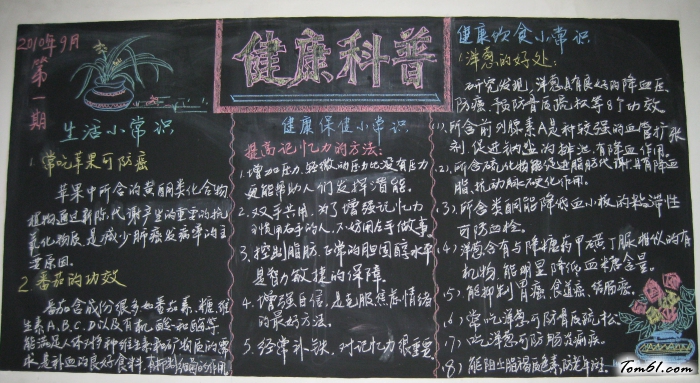 2010年9月
第一期
健康科普
生活小常识
1. 常吃苹果可防癌
苹果中所含的黄酮类化合物
植物通过新陈代谢产生的重要的抗
氧化物质是减少肺癌发病率的主
要原因。
2. 番茄的功效
番茄含成份很多如番茄素、糖、维
生素A、B、C、D以及有机酸和酶等
能满足人体对多种维生素和矿物质的需
求是补血的良好食料
健康保健小常识
提高记忆力的方法:
1. 增加压力,轻微的压力比没有压力
更能帮助人们发挥潜能。
2. 双手共用,为了增强记忆力
习惯用右手的人,不妨用左手做事。
3. 控制脂肪,正常的胆固醇水平
是智力敏捷的保障。
4. 增强自信,是克服焦虑情绪
的最好方法。
5. 经常补铁,对记忆力很重要
健康饮食小常识
1. 洋葱的好处:
研究发现,洋葱具有良好的降血压
防癌、预防骨质疏松等8个功效
(1). 所含前列腺素A是种较强的血管扩张
剂促进钠盐的排泄,有降血压作用。
(2). 所含硫化物能促进脂肪代谢具有降血
脂、抗动脉硬化作用。
(3). 所含类酮能降低血小板的粘滞性
可防血栓。
(4). 洋葱含有与降糖药甲磺丁脲相似的有
机物,能明显降低血糖含量。
(5). 能抑制胃癌、食道癌、结肠癌。
(6). 常吃洋葱可防骨质疏松
(7). 吃洋葱可防脑发病。
(8). 能阻止褐色素,防老年斑。
Tom61.com